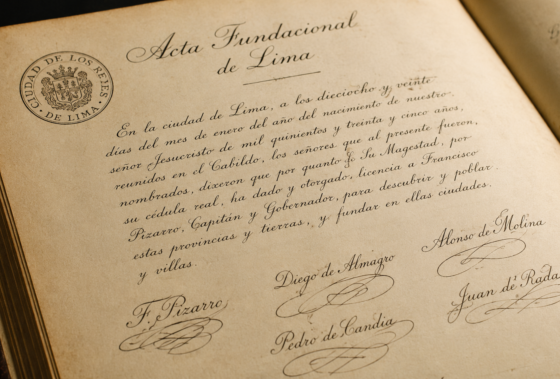 Acta Fundacional
de Lima
CIUDAD DE LOS REYES
· DE LIMA ·
En la ciudad de Lima, a los dieciocho y veinte
días del mes de enero del año del nacimiento de nuestro
señor Jesucristo de mil quinientos y treinta y cinco años,
reunidos en el Cabildo, los señores que al presente fueron,
nombrados, dixeron que por quanto Su Magestad, por
su cédula real, ha dado y otorgado, licencia a Francisco
Pizarro, Capitán y Gobernador, para descubrir y poblar
estas provincias y tierras, y fundar en ellas ciudades.
y villas
F. Pizarro
Diego de Almagro
Alonso de Molina
Pedro de Candia
Juan de Rada